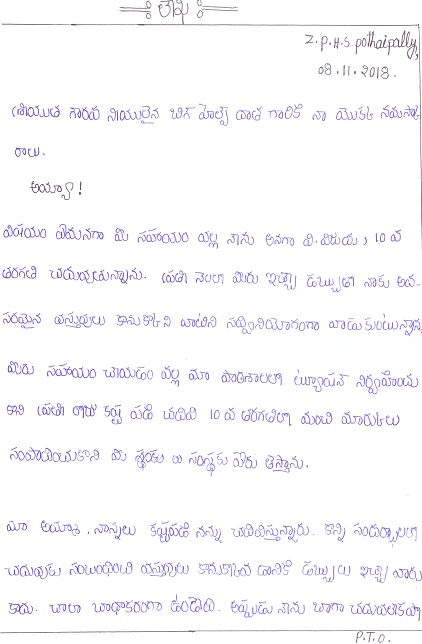 లేఖ
Z.P.H.S. pothaipally,
08.11.2018.
శ్రీయుత గౌరవ నీయులైన బిగ్ హెల్ప్ దాత గారికి నా యొక్క నమస్కా
రాలు.
అయ్యా!
విషయం ఏమనగా మీ సహాయం వల్ల నాను అనగా వి. విజయ, 10 వ
తరగతి చదువుతున్నాను. ప్రతి నెలలా మీరు ఇచ్చే డబ్బుతో నాకు అవ-
సరమైన వస్తువులు కొనుక్కొని వాటిని సద్వినియోగంగా వాడుకుంటున్నాను
మీరు సహాయం చేయడం వల్ల మా పాఠశాలలో ట్యూషన్ నిర్వహించు
కొని ప్రతి రోజు కష్ట పడి చదివి 10 వ తరగతిలో మంచి మార్కులు
సంపాదించుకొని మీ సంస్థకు పేరు తెస్తాను.
మా అమ్మా, నాన్నలు కష్టపడి నన్ను చదివిస్తున్నారు. కొన్ని సందర్భాలలో
చదువుకు సంబంధించి వస్తువులు కొనుక్కొవడానికి డబ్బులు ఇచ్చే వారు
కాదు. చాలా బాధాకరంగా ఉండేది. అప్పుడు నాను బాగా చదువలేకపో
P.T.O.